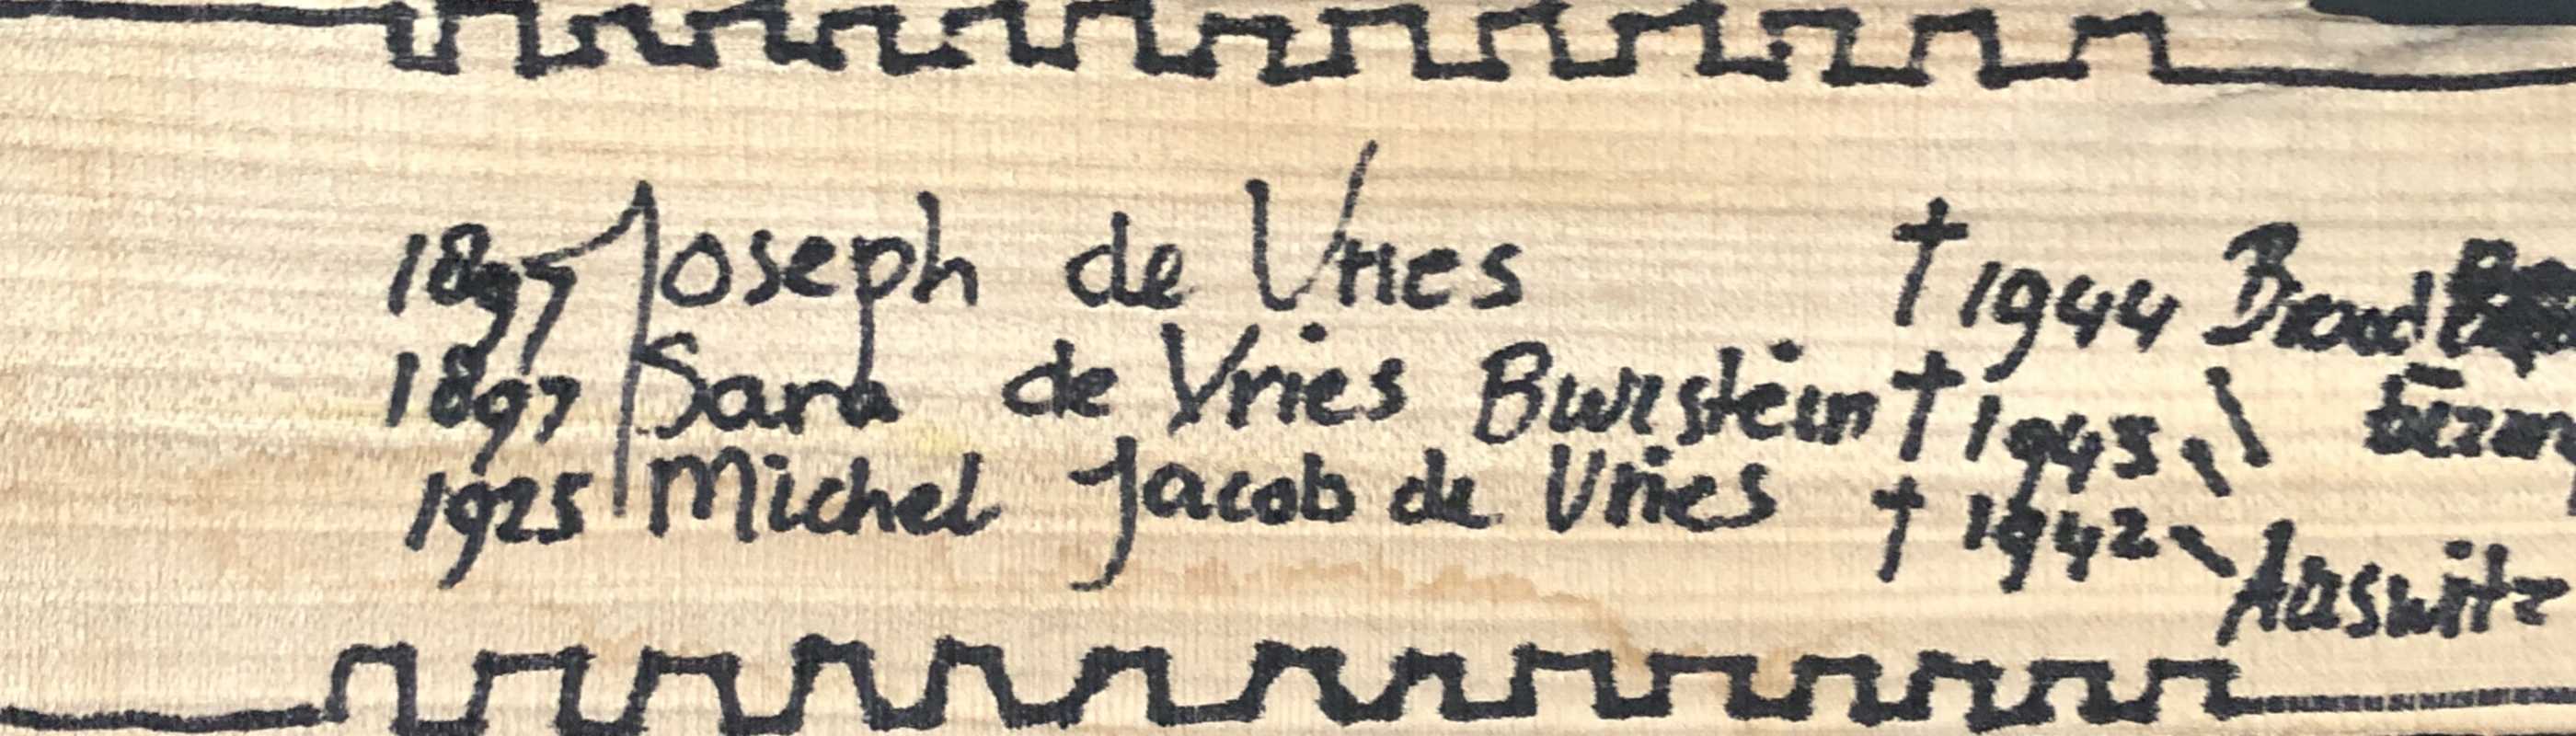 1897 Joseph de Vries † 1944
1897 Sara de Vries Burstein † 1943
1925 Michel Jacob de Vries † 1942
Auswitz